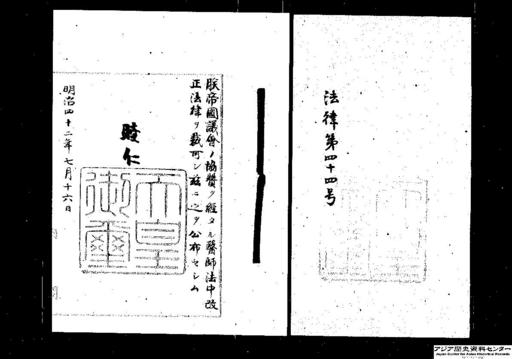 法律第四十四号
朕帝國議會ノ協賛ヲ經タル醫師法中改
正法律ヲ裁可シ茲ニ之ヲ公布セシム
睦仁
天皇御璽
明治四十二年七月十六日
アジア歴史資料センター
Japan Center for Asian Historical Records